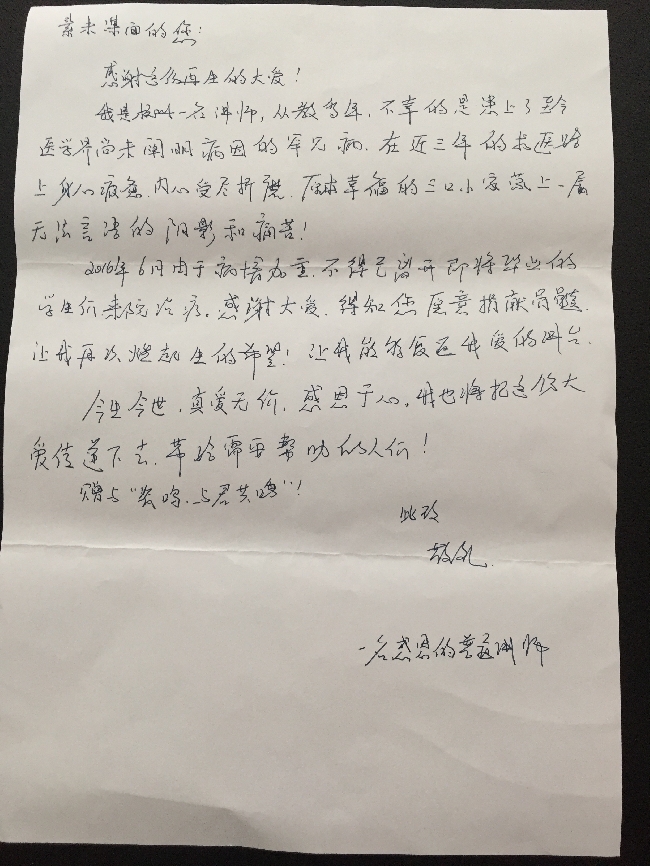 素未谋面的您:
感谢这份再生的大爱!
我是一名讲师,从教多年,不幸的是患上了至今
医学界尚未阐明病因的罕见病.在近三年的求医路
上身心疲惫,内心受尽折磨.原本幸福的三口小家蒙上一层
无法言语的阴影和痛苦!
2016年6月由于病情加重,不得已离开即将毕业的
学生们来院治疗.感谢大爱,得知您愿意捐献骨髓.
让我再次燃起生的希望!让我能够返我爱的讲台.
今生今世,真爱无价,感恩于心,我也将把这份大
爱传递下去,带给需要帮助的人们!
赠与“与君共鸣”!
此致
敬礼.
一名感恩的讲师